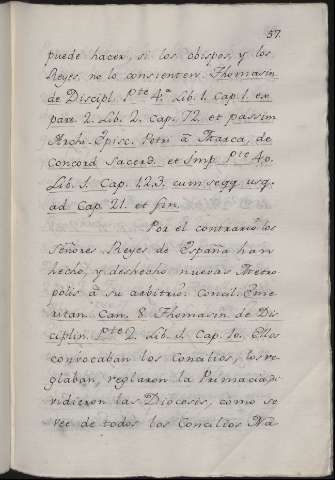 57
puede hacer, si los obispos, y los
Reyes, no lo consienten. Thomasin
de Discipl. Pte 4.a Lib. 1. Cap. 1. ex
pare 2. Lib. 2. Cap. 72. et passim
Archi-Episc. Petri a Marca, de
Concord Sacerd. et Imp. Pte 4.o
Lib. 1. Cap. 1.2.3. cum seqq usq.
ad Cap. 21. et fin.
Por el contrario los
Señores Reyes de España han
hecho, y deshecho nuevas Metro
polis a su arbitrio. Concil. Eme
ritan. Can. 8. Thomasin de Dis
ciplin. Pte 2. Lib. 1. Cap. 10. Ellos
convocaban los Concilios, los re
glaban, reglaron la Primacia, di
vidieron las Diocesis, como se
vee de todos los Concilios Na